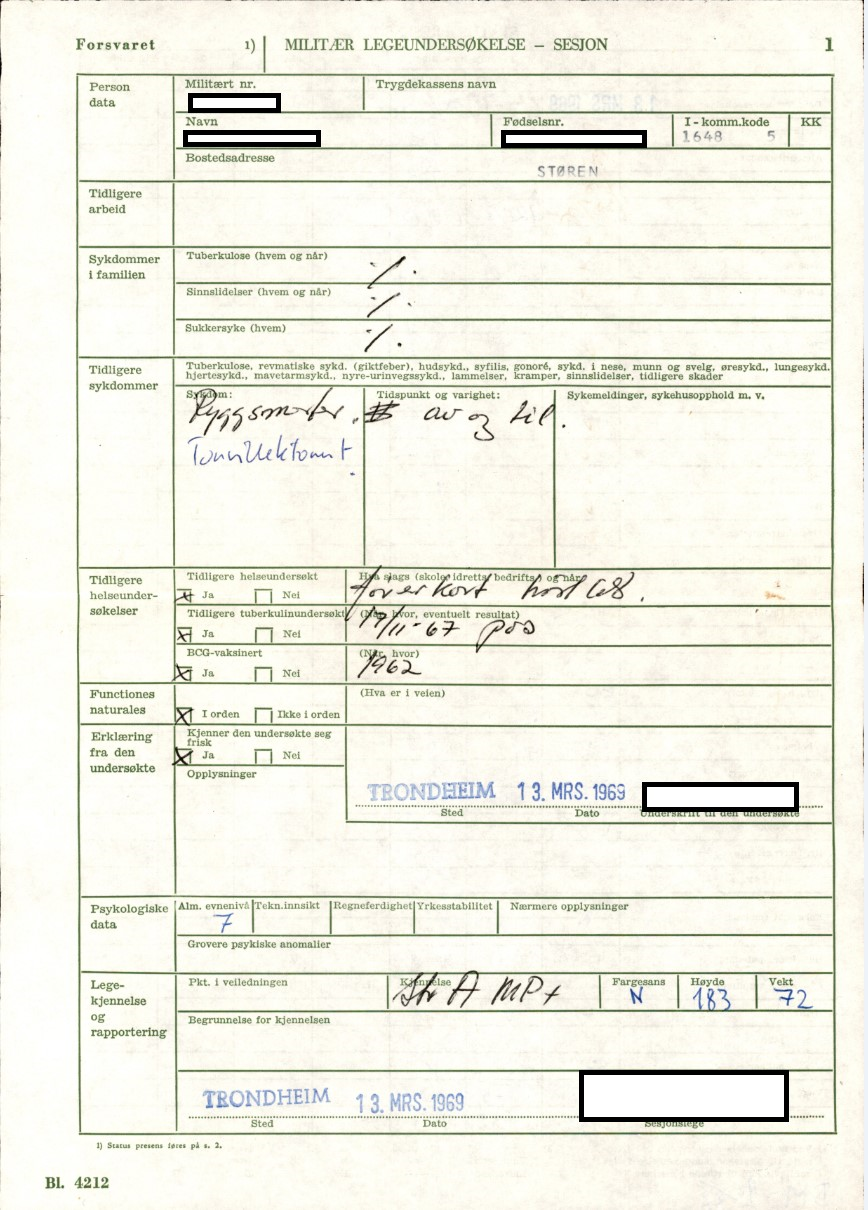 Forsvaret 1) MILITÆR LEGEUNDERSØKELSE – SESJON 1
Person data
Militært nr. Trygdekassens navn
Navn Fødselsnr. I - komm.kode KK
1648 5
Bostedsadresse
STØREN
Tidligere arbeid
Sykdommer i familien
Tuberkulose (hvem og når) ·/.
Sinnslidelser (hvem og når) ·/.
Sukkersyke (hvem) ·/.
Tidligere sykdommer
Tuberkulose, revmatiske sykd. (giktfeber), hudsykd., syfilis, gonoré, sykd. i nese, munn og svelg, øresykd., lungesykd.
hjertesykd., mavetarmsykd., nyre-urinvegssykd., lammelser, kramper, sinnslidelser, tidligere skader
Sykdom: Tidspunkt og varighet: Sykemeldinger, sykehusopphold m. v.
Ryggsmerter. av og til.
Tonsillektomt.
Tidligere helseundersøkelser
Tidligere helseundersøkt Hva slags (skole, idretts, bedrifts) og når
x Ja Nei førerkort høst 68.
Tidligere tuberkulinundersøkt (Når, hvor, eventuelt resultat)
x Ja Nei 17/11-67 pos
BCG-vaksinert (Når, hvor)
x Ja Nei 1962
Functiones naturales
(Hva er i veien)
x I orden Ikke i orden
Erklæring fra den undersøkte
Kjenner den undersøkte seg
frisk
x Ja Nei
Opplysninger
TRONDHEIM 13. MRS. 1969
Sted Dato Underskrift til den undersøkte
Psykologiske data
Alm. evnenivå Tekn.innsikt Regneferdighet Yrkesstabilitet Nærmere opplysninger
7
Grovere psykiske anomalier
Lege-kjennelse og rapportering
Pkt. i veiledningen Kjennelse Fargesans Høyde Vekt
Str A MP+ N 183 72
Begrunnelse for kjennelsen
TRONDHEIM 13. MRS. 1969
Sted Dato Sesjonslege
1) Status presens føres på s. 2.
Bl. 4212